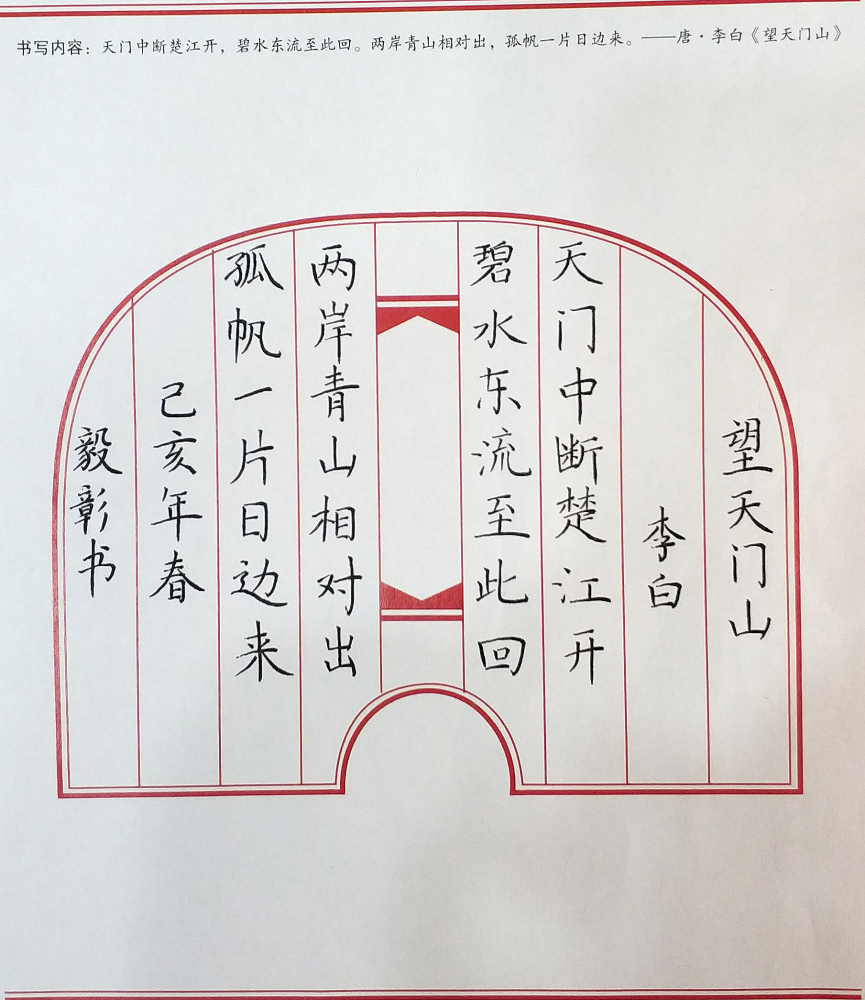 书写内容：天门中断楚江开，碧水东流至此回。两岸青山相对出，孤帆一片日边来。——唐·李白《望天门山》
望天门山
李白
天门中断楚江开
碧水东流至此回
两岸青山相对出
孤帆一片日边来
己亥年春
毅彰书